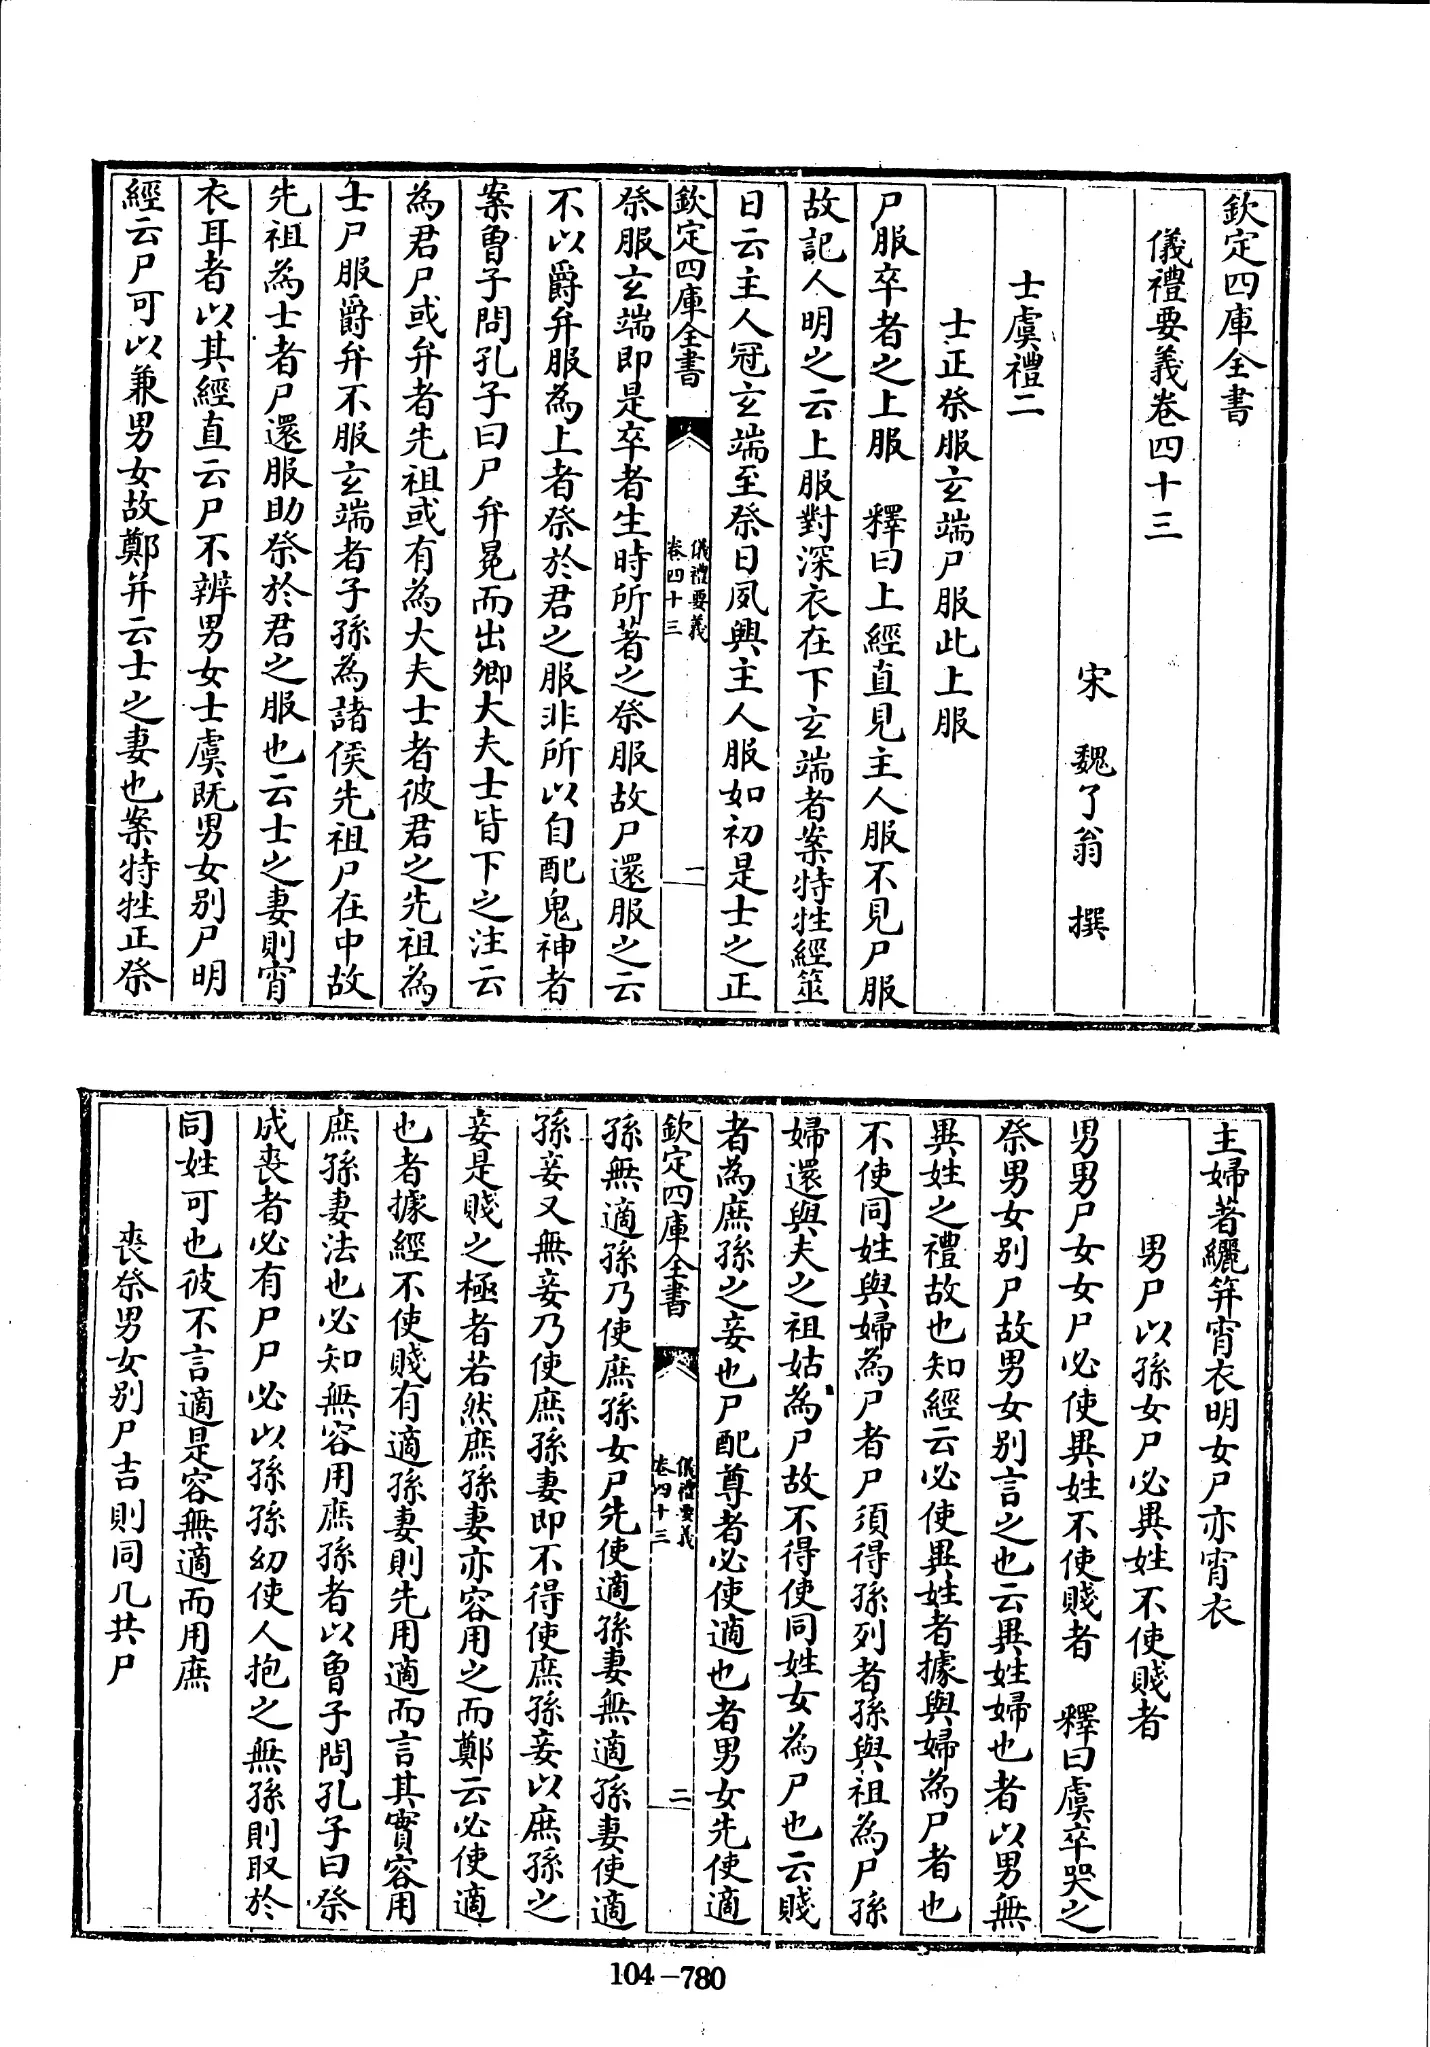 欽定四庫全書
儀禮要義卷四十三
宋　魏了翁　撰
士虞禮二
士正祭服玄端尸服此上服
尸服卒者之上服　釋曰上經直見主人服不見尸服
故記人明之云上服對深衣在下玄端者案特牲經筮
日云主人冠玄端至祭日夙興主人服如初是士之正
欽定四庫全書
儀禮要義
卷四十三
一
祭服玄端即是卒者生時所著之祭服故尸還服之云
不以爵弁服為上者祭於君之服非所以自配鬼神者
案曾子問孔子曰尸弁冕而出卿大夫士皆下之注云
為君尸或弁者先祖或有為大夫士者彼君之先祖為
士尸服爵弁不服玄端者子孫為諸侯先祖尸在中故
先祖為士者尸還服助祭於君之服也云士之妻則宵
衣耳者以其經直云尸不辨男女士虞既男女别尸明
經云尸可以兼男女故鄭并云士之妻也案特牲正祭
主婦著纚笄宵衣明女尸亦宵衣
男尸以孫女尸必異姓不使賤者
男男尸女女尸必使異姓不使賤者　釋曰虞卒哭之
祭男女别尸故男女别言之也云異姓婦也者以男無
異姓之禮故也知經云必使異姓者據與婦為尸者也
不使同姓與婦為尸者尸須得孫列者孫與祖為尸孫
婦還與夫之祖姑為尸故不得使同姓女為尸也云賤
者為庶孫之妾也尸配尊者必使適也者男女先使適
欽定四庫全書
儀禮要義
卷四十三
二
孫無適孫乃使庶孫女尸先使適孫妻無適孫妻使適
孫妾又無妾乃使庶孫妻即不得使庶孫妾以庶孫之
妾是賤之極者若然庶孫妻亦容用之而鄭云必使適
也者據經不使賤有適孫妻則先用適而言其實容用
庶孫妻法也必知無容用庶孫者以曾子問孔子曰祭
成喪者必有尸尸必以孫孫幼使人抱之無孫則取於
同姓可也彼不言適是容無適而用庶
喪祭男女别尸吉則同几共尸
104-780